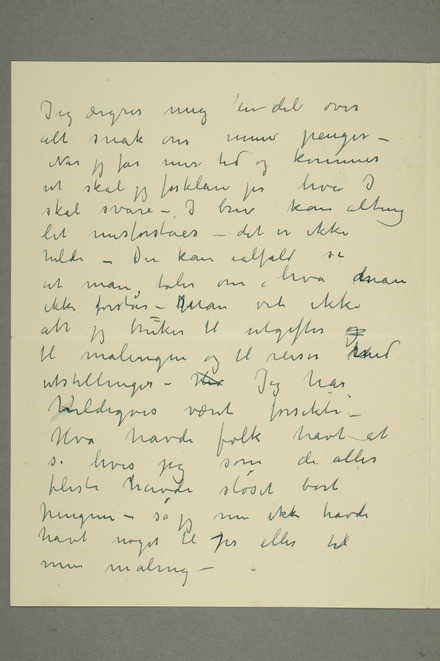 Jeg ærgrer mig en del over
alt snak om mine penger –
Når jeg får mer tid og kommer
ut skal jeg forklare jer hva I
skal svare – I brev kan alting
let misforståes – det er ikke
– Du kan ialfald si
at man taler om hva man
ikke forstår – Man vet ikke
alt jeg bruker til utgifter og
til malingen og til reiser med
utstillinger – Jeg har
heldigvis været forsiktig –
Hva havde folk havt at
si hvis jeg som de aller
fleste havde sløset bort
pengene – så jeg nu ikke havde
havt noget til jer eller til
min maling –